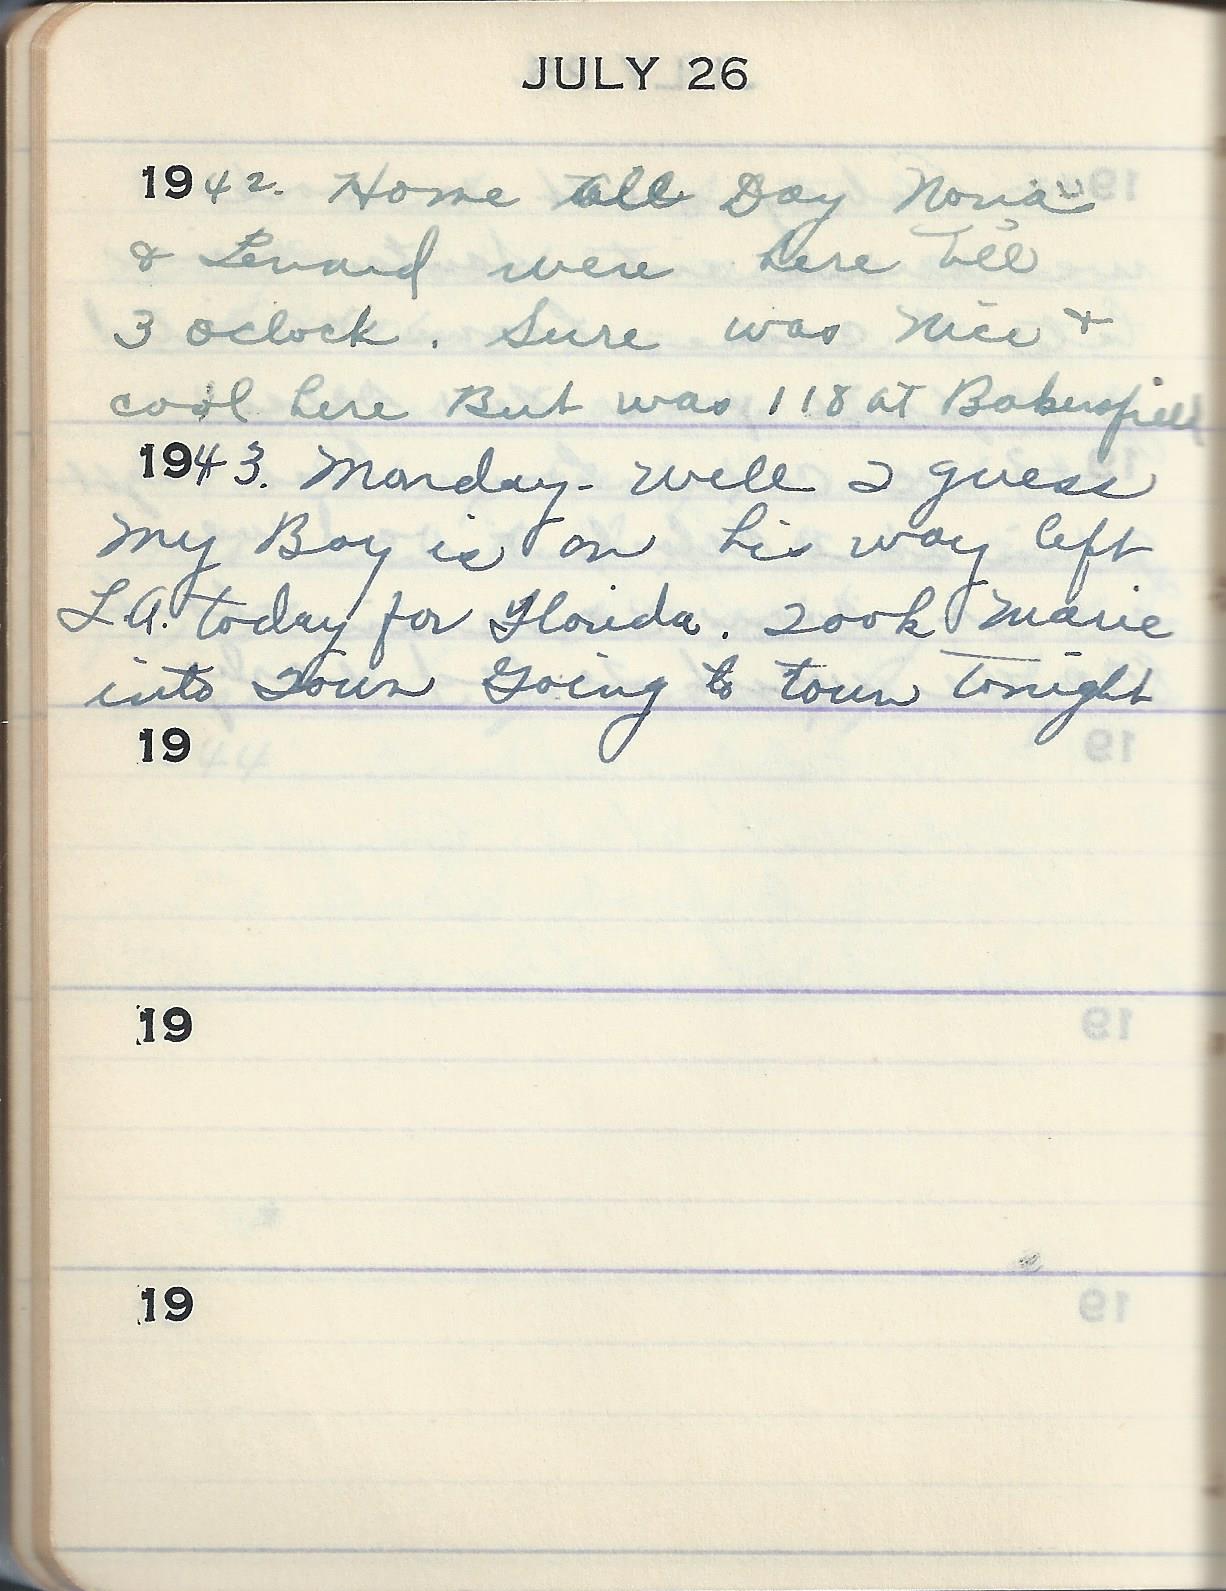 JULY 26
1942. Home all Day Nona
& Lenard were here till
3 oclock. Sure was Nice &
cool here But was 118 at Bakersfield
1943. Monday- well I guess
my Boy is on his way left
L.A. today for Florida. Took Marie
into Town Going to town tonight
19
19
19